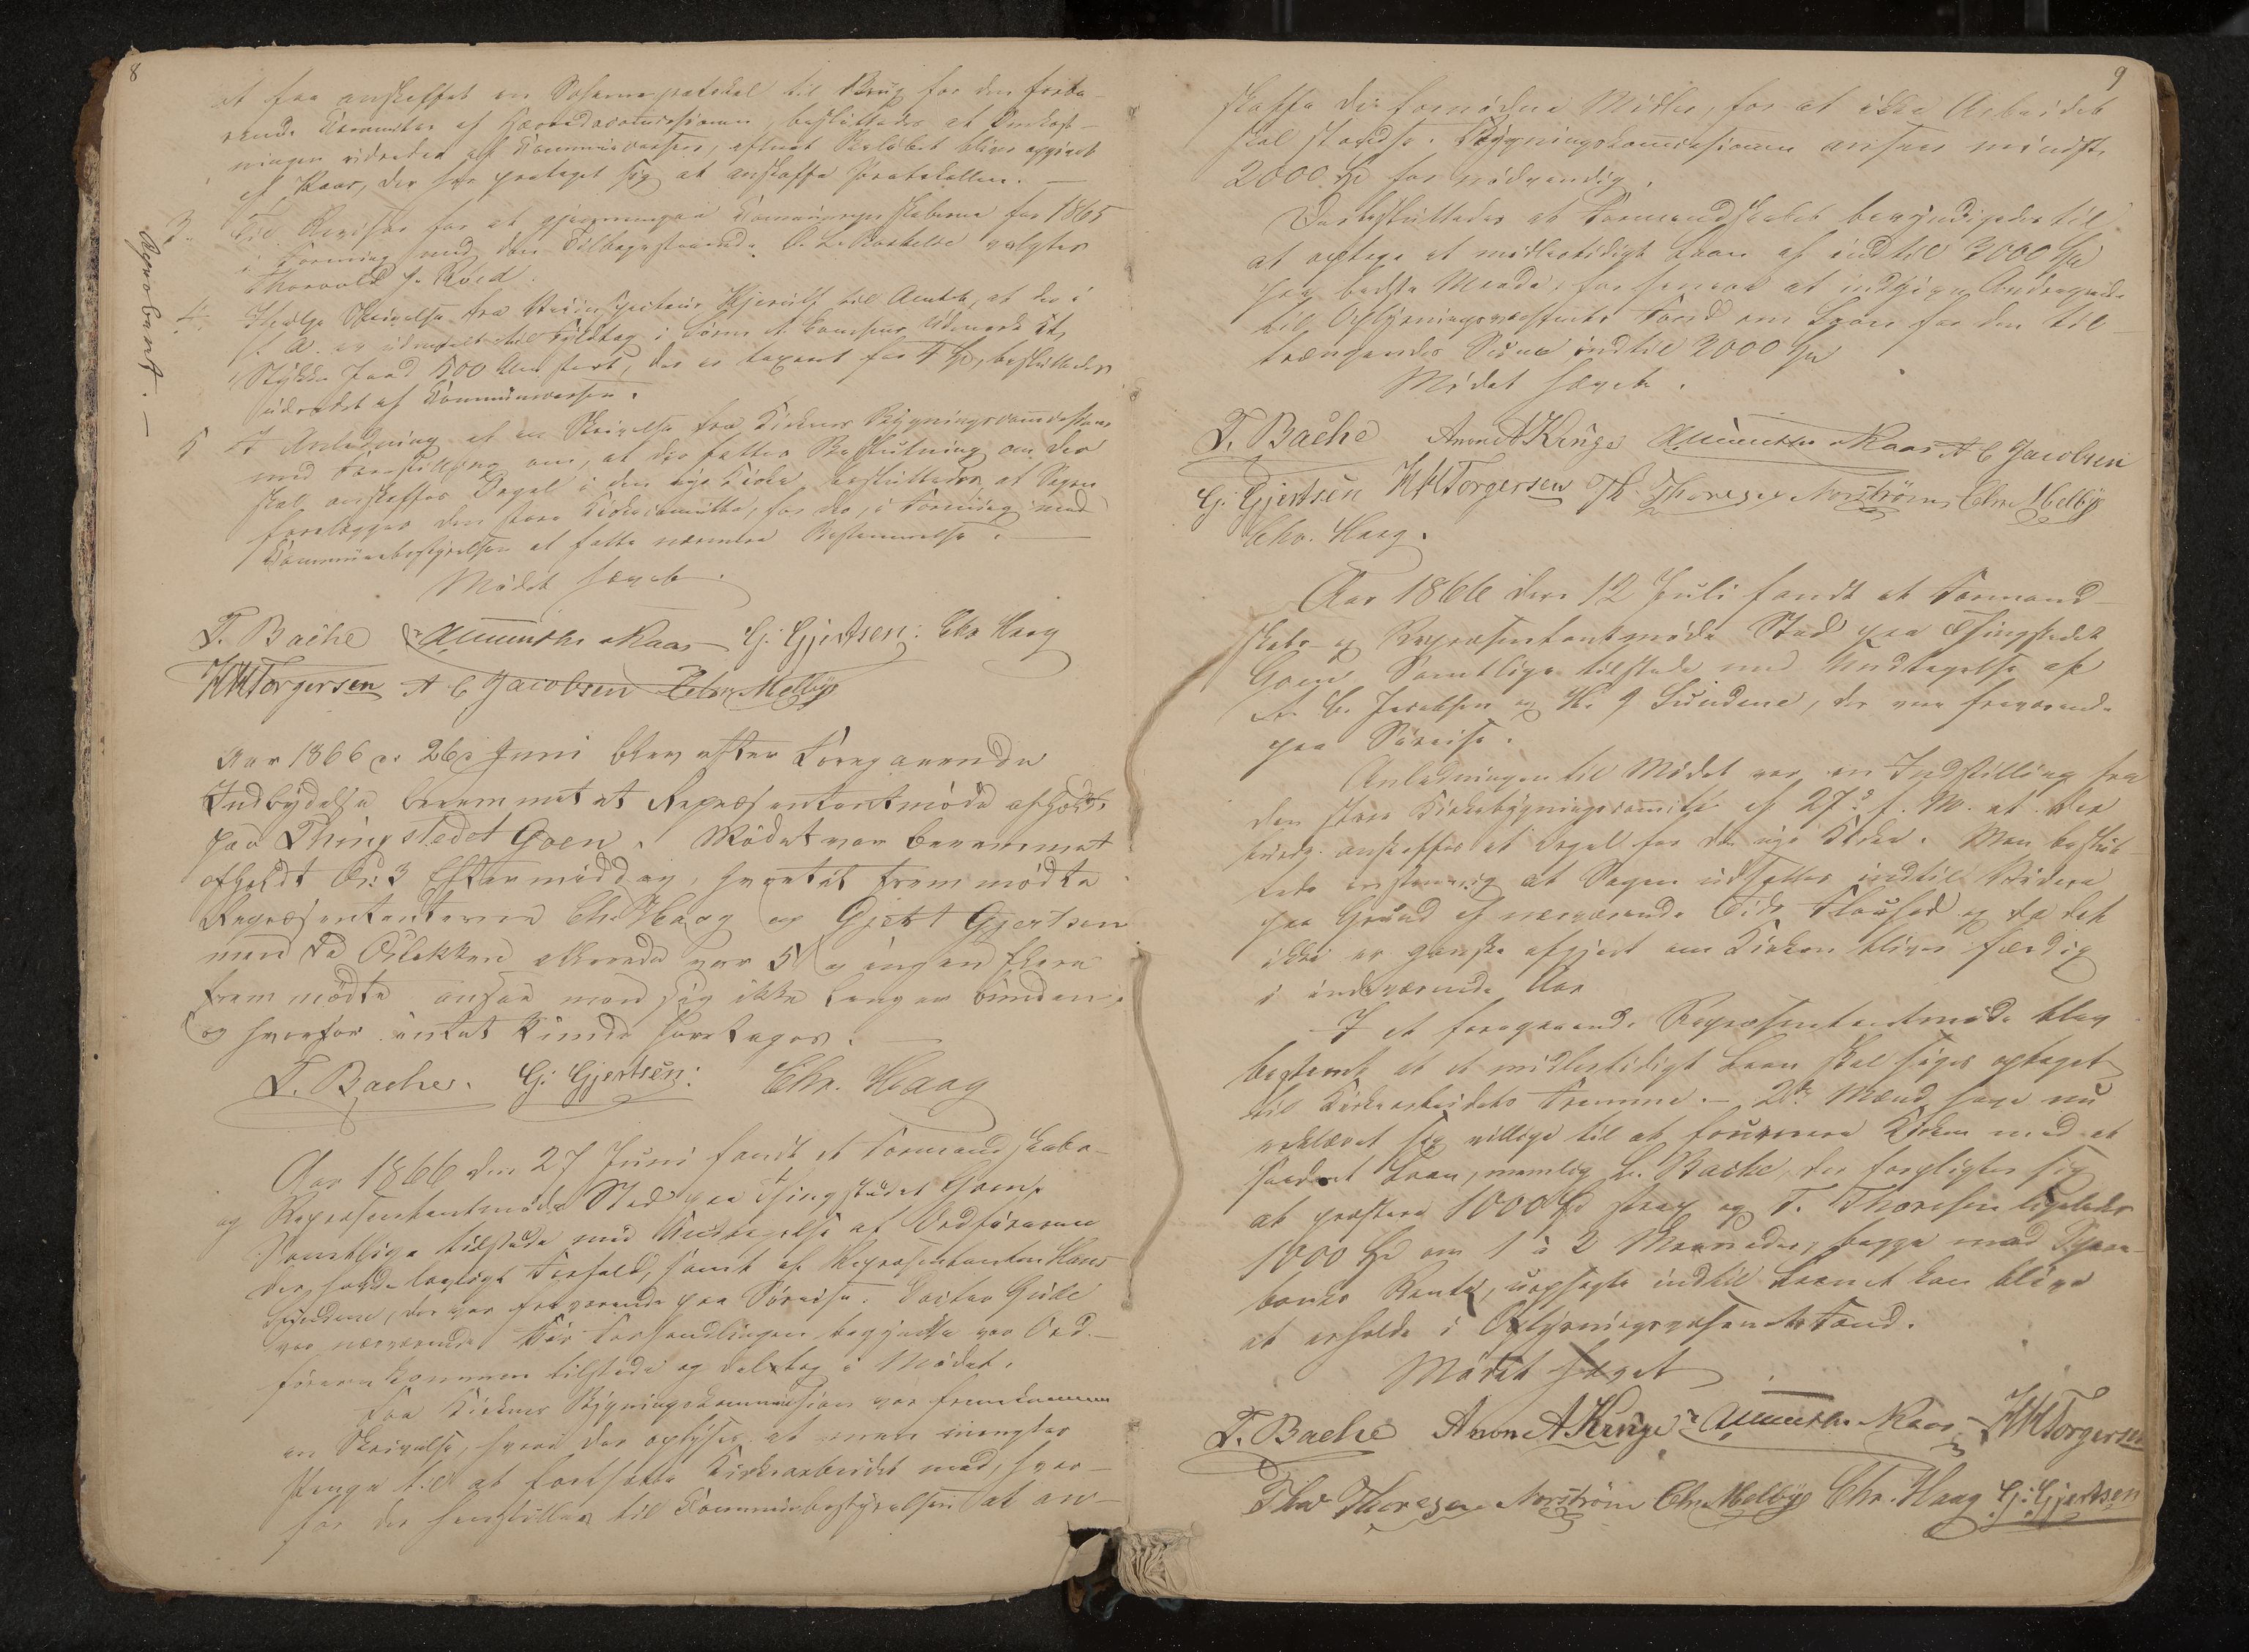 8
at faa anskaffet en Schema protokol til Brug for den forbe-
rende Kommites af Herredscommissionen, besluttedes at Omkost-
ningen udredes af Kommunecassen, efterat Beløbet bliver opgivet
af Kaas, der har paataget sig at anskaffe Protokollen. —
3. Til Revisor for at gjennemgaa Kommuneregnskaberne for 1865
i Forening med den Tilbagestaaende valgtes
Thorvold J.
4. Ifølge Skrivelse fra Veiinspecteur til Amtet, at der i
f. A. er udmaalt til Fyldtag i Udmark et
Stykke Jord 500 Alen stort, der er taxeret for 4 Spd, besluttedes
udredet af Kommunecassen.
Approbert. —
5 I Anledning af en Skrivelse fra Kirkens Bygningscommission
med Forestilling om, at der fattes Beslutning om der
skal anskaffes Orgel i den nye Kirke, besluttedes at Sagen
forelægges den store Kirkecomitte, for der, i Forening med
Kommunebestyrelsen at fatte nærmere Bestemmelse. —
Mødet hævet.
T. Bache Kaas G. Gjertsen: Chr Haag
H H Torgersen A C Jacobsen Chr. Melbye
Aar 1866 d. 26de Juni blev efter Foregaaende
Indbydelse berammet et Repræsentantmøde afholdt
paa Thingstedet Goen. Mødet var berammet
afholdt Kl: 3 Eftermiddag, hvortil fremmødte
Repræsentanterne Chr. Haag og Gjert Gjertsen
men da Klokken allerede var 5 og ingen flere
fremmødte ansaa man sig ikke længer bunden.
og hvorfor intet kunde foretages. —
T. Bache. G. Gjertsen: Chr. Haag
Aar 1866 den 27 Juni fandt et Formandskabs-
og Repræsentantmøde Sted paa Thingstedet Goen.
Samtlige tilstede med Undtagelse af Ordføreren
der havde lovligt Forfald, samt af Repræsentanten Hans
Sundene, der var fraværende paa Søreise. Doctor Gude
var nærværende. Før Forhandlingen begyndte var Ord-
føreren kommen tilstede og deltog i Mødet.
Fra Kirkens Bygningskommission var fremkommen
en Skrivelse, hvori der oplyses at man mangler
Penge til at fortsætte Kirkearbeidet med, hvor-
for der henstilles til Kommunebestyrelsen at an-
9
skaffe de fornødne Midler, for at ikke Arbeidet
skal standse. Bygningskommissionen anser mindst
2000 Spd for nødvendig.
Der besluttedes at Formandskabet bemyndiges til
at optage et midlertidigt Laan af indtil 2000 Spd
paa bedste Maade, for senere at indgive Andragende
til Oplysningsvæsenets Fond om Laan for den til-
trængende Summa indtil 2000 Spd
Mødet hævet.
T. Bache Anon A Kruge Kaas A C Jacobsen
G. Gjertsen H H Torgersen Th. Thoresen Norström Chr. Melbye
Chr. Haag.
Aar 1866 den 12 Juli fandt et Formand-
skabs- og Repræsentantmøde Sted paa Thingstedet
Goen. Samtlige tilstede med Undtagelse af
A. C. Jacobsen og H. J Sundene, der var fraværende
paa Søreise.
Anledningen til Mødet var en Indstilling fra
den store Kirkebygningscomité af 27de f. M. at der
anskaffes et Orgel for den nye Kirke. Man beslut-
tede enstemmig at Sagen udsættes indtil Videre
paa Grund af nærværende Tids og da det
ikke er ganske afgjort om Kirken bliver færdig
i indeværende Aar
I et foregaaende Repræsentantmøde blev
bestemt at et midlertidigt Laan skal søges optaget
til Kirkearbeidets Fremme. — 2de Mænd have nu
erklæret sig villige til at forsyne Kirken med et
saadant Laan, nemlig L. Bache, der forpligter sig
at præstere 1000 Spd strax og T. Thoresen ligeledes
1000 Spd om 1 à 2 Maaneder, begge mod Spare-
banks Rente, uopsagte indtil Laanet kan blive
at erholde i Oplysningsvæsenets Fond.
Mødet hævet
T. Bache Anon A Kruge Kaas H H Torgersen
Thor Thoresen Norström Chr. Melbye Chr. Haag G. Gjertsen